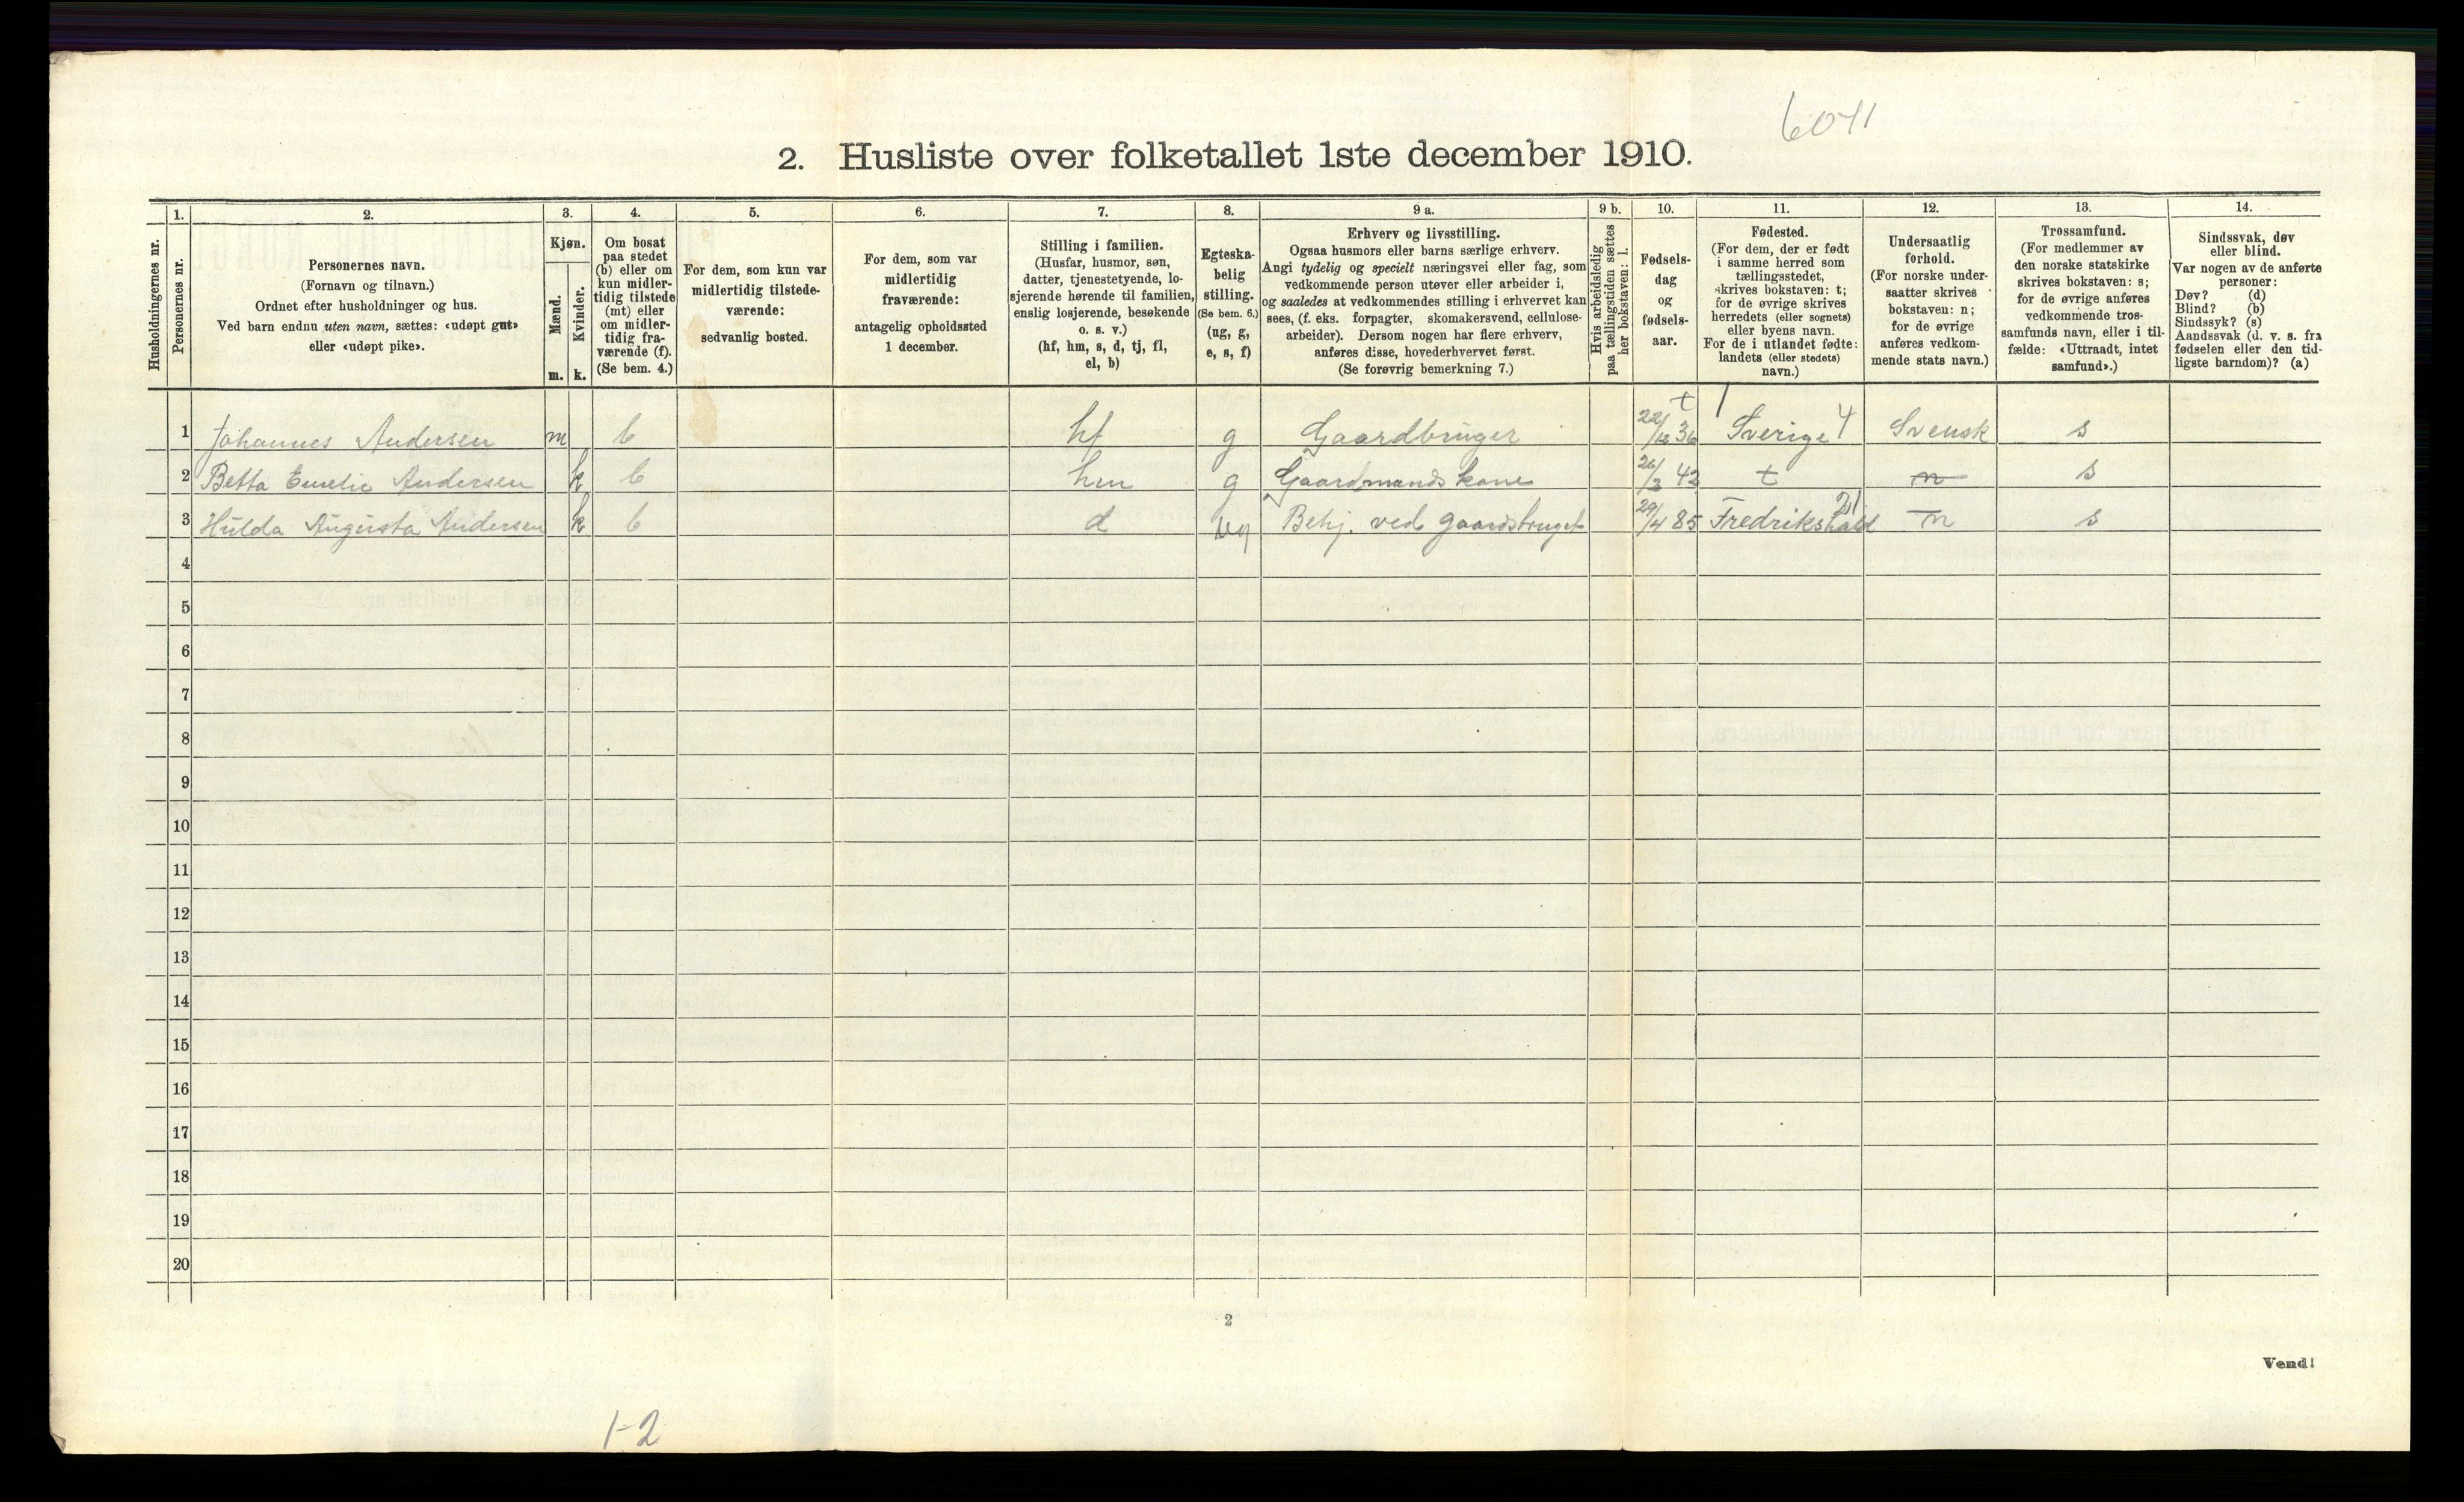 6041
2. Husliste over folketallet 1ste december 1910.
Husholdningernes nr.
1.
Personernes nr.
2.
Personernes navn.
(Fornavn og tilnavn.)
Ordnet efter husholdninger og hus.
Ved barn endnu uten navn, sættes: «udøpt gut»
eller «udøpt pike».
3.
Kjøn.
Mænd.
m.
Kvinder.
k.
4.
Om bosat
paa stedet
(b) eller om
kun midler-
tidig tilstede
(mt) eller
om midler-
tidig fra-
værende (f).
(Se bem. 4.)
5.
For dem, som kun var
midlertidig tilstede-
værende:
sedvanlig bosted.
6.
For dem, som var
midlertidig
fraværende:
antagelig opholdssted
1 december.
7.
Stilling i familien.
(Husfar, husmor, søn,
datter, tjenestetyende, lo-
sjerende hørende til familien,
enslig losjerende, besøkende
o. s. v.)
(hf, hm, s, d, tj, fl,
el, b)
8.
Egteska-
belig
stilling.
(Se bem. 6.)
(ug, g,
e, s, f)
9 a.
Erhverv og livsstilling.
Ogsaa husmors eller barns særlige erhverv.
Angi tydelig og specielt næringsvei eller fag, som
vedkommende person utøver eller arbeider i,
og saaledes at vedkommendes stilling i erhvervet kan
sees, (f. eks. forpagter, skomakersvend, cellulose-
arbeider). Dersom nogen har flere erhverv,
anføres disse, hovederhvervet først.
(Se forøvrig bemerkning 7.)
9 b.
Hvis arbeidsledig
paa tællingstiden sættes
her bokstaven: l.
10.
Fødsels-
dag
og
fødsels-
aar.
11.
Fødested.
(For dem, der er født
i samme herred som
tællingsstedet,
skrives bokstaven: t;
for de øvrige skrives
herredets (eller sognets)
eller byens navn.
For de i utlandet fødte:
landets (eller stedets)
navn.)
12.
Undersaatlig
forhold.
(For norske under-
saatter skrives
bokstaven: n;
for de øvrige
anføres vedkom-
mende stats navn.)
13.
Trossamfund.
(For medlemmer av
den norske statskirke
skrives bokstaven: s;
for de øvrige anføres
vedkommende tros-
samfunds navn, eller i til-
fælde: «Uttraadt, intet
samfund».)
14.
Sindssvak, døv
eller blind.
Var nogen av de anførte
personer:
Døv? (d)
Blind? (b)
Sindssyk? (s)
Aandssvak (d. v. s. fra
fødselen eller den tid-
ligste barndom)? (a)
1 Johannes Andersen m b hf g Gaardbruger 22/12 36 Sverige 4 Svensk s
2 Betta Emelie Andersen k b hm g Gaardmandskone 26/3 42 t n s
3 Hulda Augusta Andersen k b d ug Behj. ved gaardsbruget 29/4 85 Fredrikshald 21 n s
4
5
6
7
8
9
10
11
12
13
14
15
16
17
18
19
20
2
Vend!
1-2